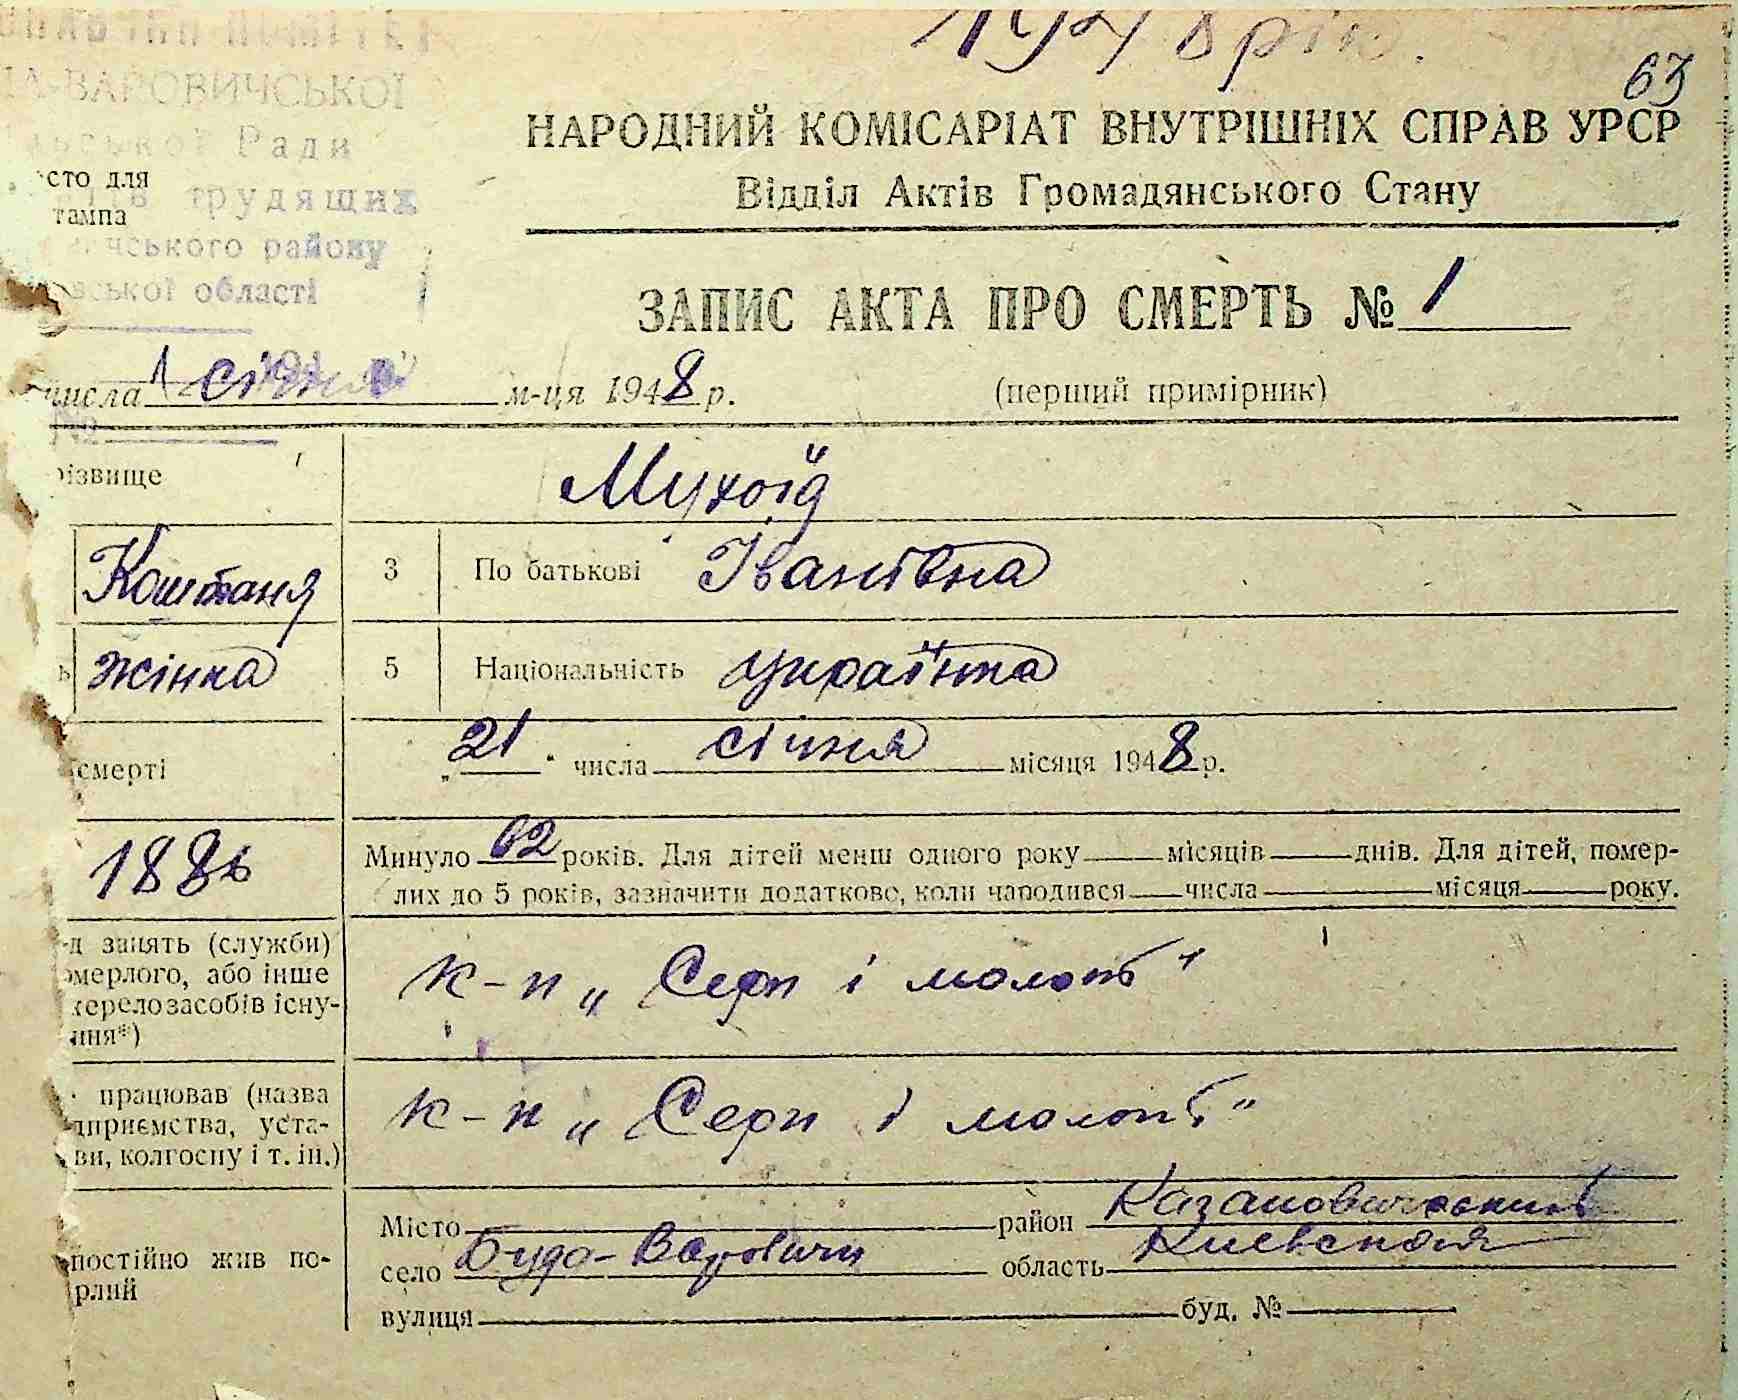 1948 рік.
63
ВАРОВИЧСЬКОЇ
Ради
трудящих
району
області
сто для
тампа
НАРОДНИЙ КОМІСАРІАТ ВНУТРІШНІХ СПРАВ УРСР
Відділ Актів Громадянського Стану
ЗАПИС АКТА ПРО СМЕРТЬ № 1
числа м-ця 1948 р. (перший примірник)
№
різвище Мухоїд
Коштаня 3 По батькові Іванівна
ь жінка 5 Національність українка
смерті „21" числа січня місяця 1948 р.
1886 Минуло 62 років. Для дітей менш одного року місяців днів. Для дітей, помер-
лих до 5 років, зазначити додатково, коли народився числа місяця року.
д занять (служби)
омерлого, або інше
жерело засобів існу-
ння*)
к-п „Серп і молот"
працював (назва
дприємства, уста-
ви, колгоспу і т. ін.)
к-п „Серп і молот"
постійно жив по-
рлий
Місто район
село Будо-Варовичи область Киевская
вулиця буд. №